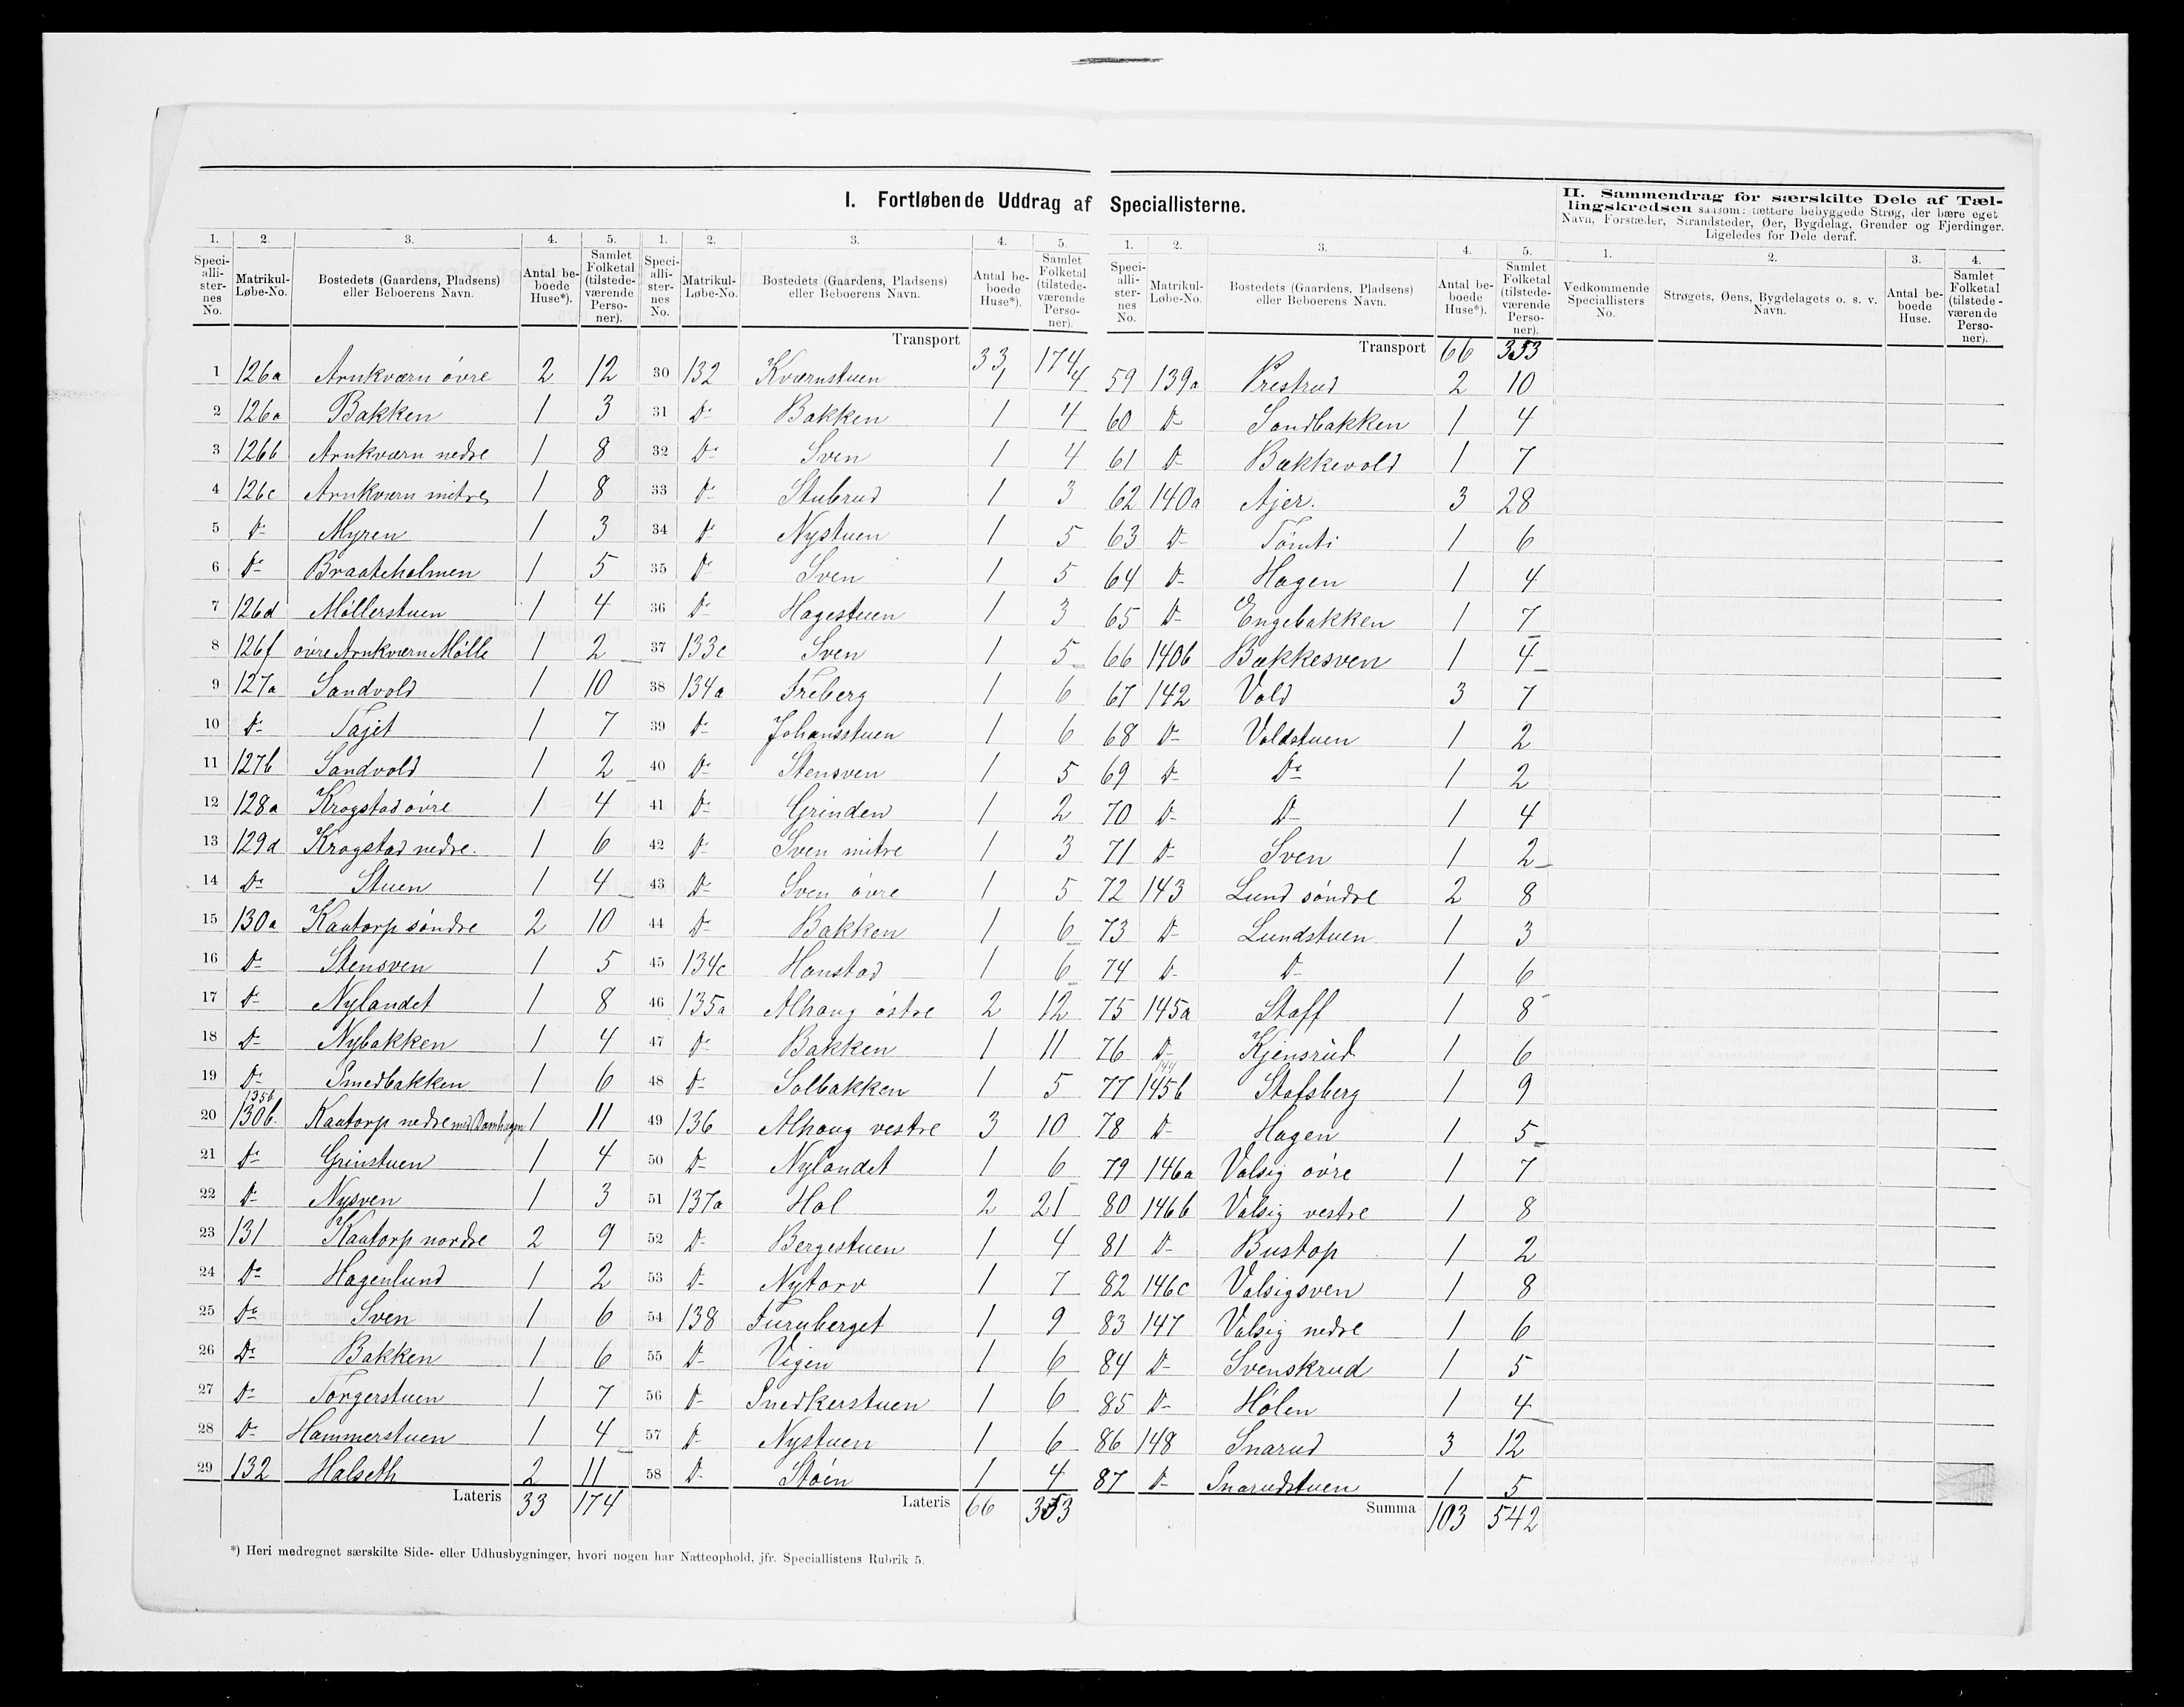 I. Fortløbende Uddrag af Speciallisterne.
II. Sammendrag for særskilte Dele af Tæl-
lingskredsen saasom: tættere bebyggede Strøg, der bære eget
Navn, Forstæder, Strandsteder, Øer, Bygdelag, Grender og Fjerdinger.
Ligeledes for Dele deraf.
1. 2. 3. 4. 5. 1. 2. 3. 4. 5. 1. 2. 3. 4. 5. 1. 2. 3. 4.
Speci-alli-ster-nes No. Matrikul-Løbe-No. Bostedets (Gaardens, Pladsens) eller Beboerens Navn. Antal be-boede Huse*). Samlet Folketal (tilstede-værende Perso-ner).
Speci-alli-ster-nes No. Matrikul-Løbe-No. Bostedets (Gaardens, Pladsens) eller Beboerens Navn. Antal be-boede Huse*). Samlet Folketal (tilstede-værende Perso-ner).
Speci-alli-ster-nes No. Matrikul-Løbe-No. Bostedets (Gaardens, Pladsens) eller Beboerens Navn. Antal be-boede Huse*). Samlet Folketal (tilstede-værende Perso-ner).
Vedkommende Speciallisters No. Strøgets, Øens, Bygdelagets o. s. v. Navn. Antal be-boede Huse. Samlet Folketal (tilstede-værende Perso-ner).
1 126a Arnkværn øvre 2 12
2 126a Bakken 1 3
3 126b Arnkværn nedre 1 8
4 126c Arnkværn mitre 1 8
5 Do Myren 1 3
6 Do Braateholmen 1 5
7 126d Møllerstuen 1 4
8 126f øvre Arnkværn Mølle 1 2
9 127a Sandvold 1 10
10 Do Tajet 1 7
11 127b Sandvold 1 2
12 128a Krogstad øvre 1 4
13 129d Krogstad nedre. 1 6
14 Do Stuen 1 4
15 130a Kautorp søndre 2 10
16 Do Stensven 1 5
17 Do Nylandet 1 8
18 Do Nybakken 1 4
19 Do Smedbakken 1 6
135b
20 130b. Kautorp nedre med Damhagen 1 11
21 Do Grinstuen 1 4
22 Do Nysven 1 3
23 131 Kautorp nordre 2 9
24 Do Hagenlund 1 2
25 Do Sven 1 6
26 Do Bakken 1 6
27 Do Torgerstuen 1 7
28 Do Hammerstuen 1 4
29 132 Halseth 2 11
Lateris 33 174
Transport 33 174
30 132 Kværnstuen 1 4
31 Do Bakken 1 4
32 Do Sven 1 4
33 Do Stubrud 1 3
34 Do Nystuen 1 5
35 Do Sven 1 5
36 Do Hagestuen 1 3
37 133c Sven 1 5
38 134a Freberg 1 6
39 Do Johansstuen 1 6
40 Do Stensven 1 5
41 Do Grinden 1 2
42 Do Sven mitre 1 3
43 Do Sven øvre 1 5
44 Do Bakken 1 6
45 134c Hanstad 1 6
46 135a Alhaug østre 2 12
47 Do Bakken 1 11
48 Do Solbakken 1 5
49 136 Alhaug vestre 3 10
50 Do Nylandet 1 6
51 137a Hol 2 21
52 Do Bergestuen 1 4
53 Do Nytorv 1 7
54 138 Furuberget 1 9
55 Do Vigen 1 6
56 Do Snedkerstuen 1 6
57 Do Nystuen 1 6
58 Do Støen 1 4
Lateris 66 353
Transport 66 353
59 139a Prestrud 2 10
60 Do Sandbakken 1 4
61 Do Bækkevold 1 7
62 140a Ajer. 3 28
63 Do Tømti 1 6
64 Do Hagen 1 4
65 Do Engebakken 1 7
66 140b Bækkesven 1 4
67 142 Vold 3 7
68 Do Voldstuen 1 2
69 Do Do 1 2
70 Do Do 1 4
71 Do Sven 1 2
72 143 Lund søndre 2 8
73 Do Lundstuen 1 3
74 Do Do 1 6
75 145a Staff 1 8
76 Do Kjensrud 1 6
144
77 145b Stafsberg 1 9
78 Do Hagen 1 5
79 146a Valsig øvre 1 7
80 146b Valsig vestre 1 8
81 Do Bustop 1 2
82 146c Valsigsven 1 8
83 147 Valsig nedre 1 6
84 Do Svenskrud 1 5
85 Do Hølen 1 4
86 148 Snarud 3 12
87 Do Snarudstuen 1 5
Summa 103 542
*) Heri medregnet særskilte Side- eller Udhusbygninger, hvori nogen har Natteophold, jfr. Speciallistens Rubrik 5.